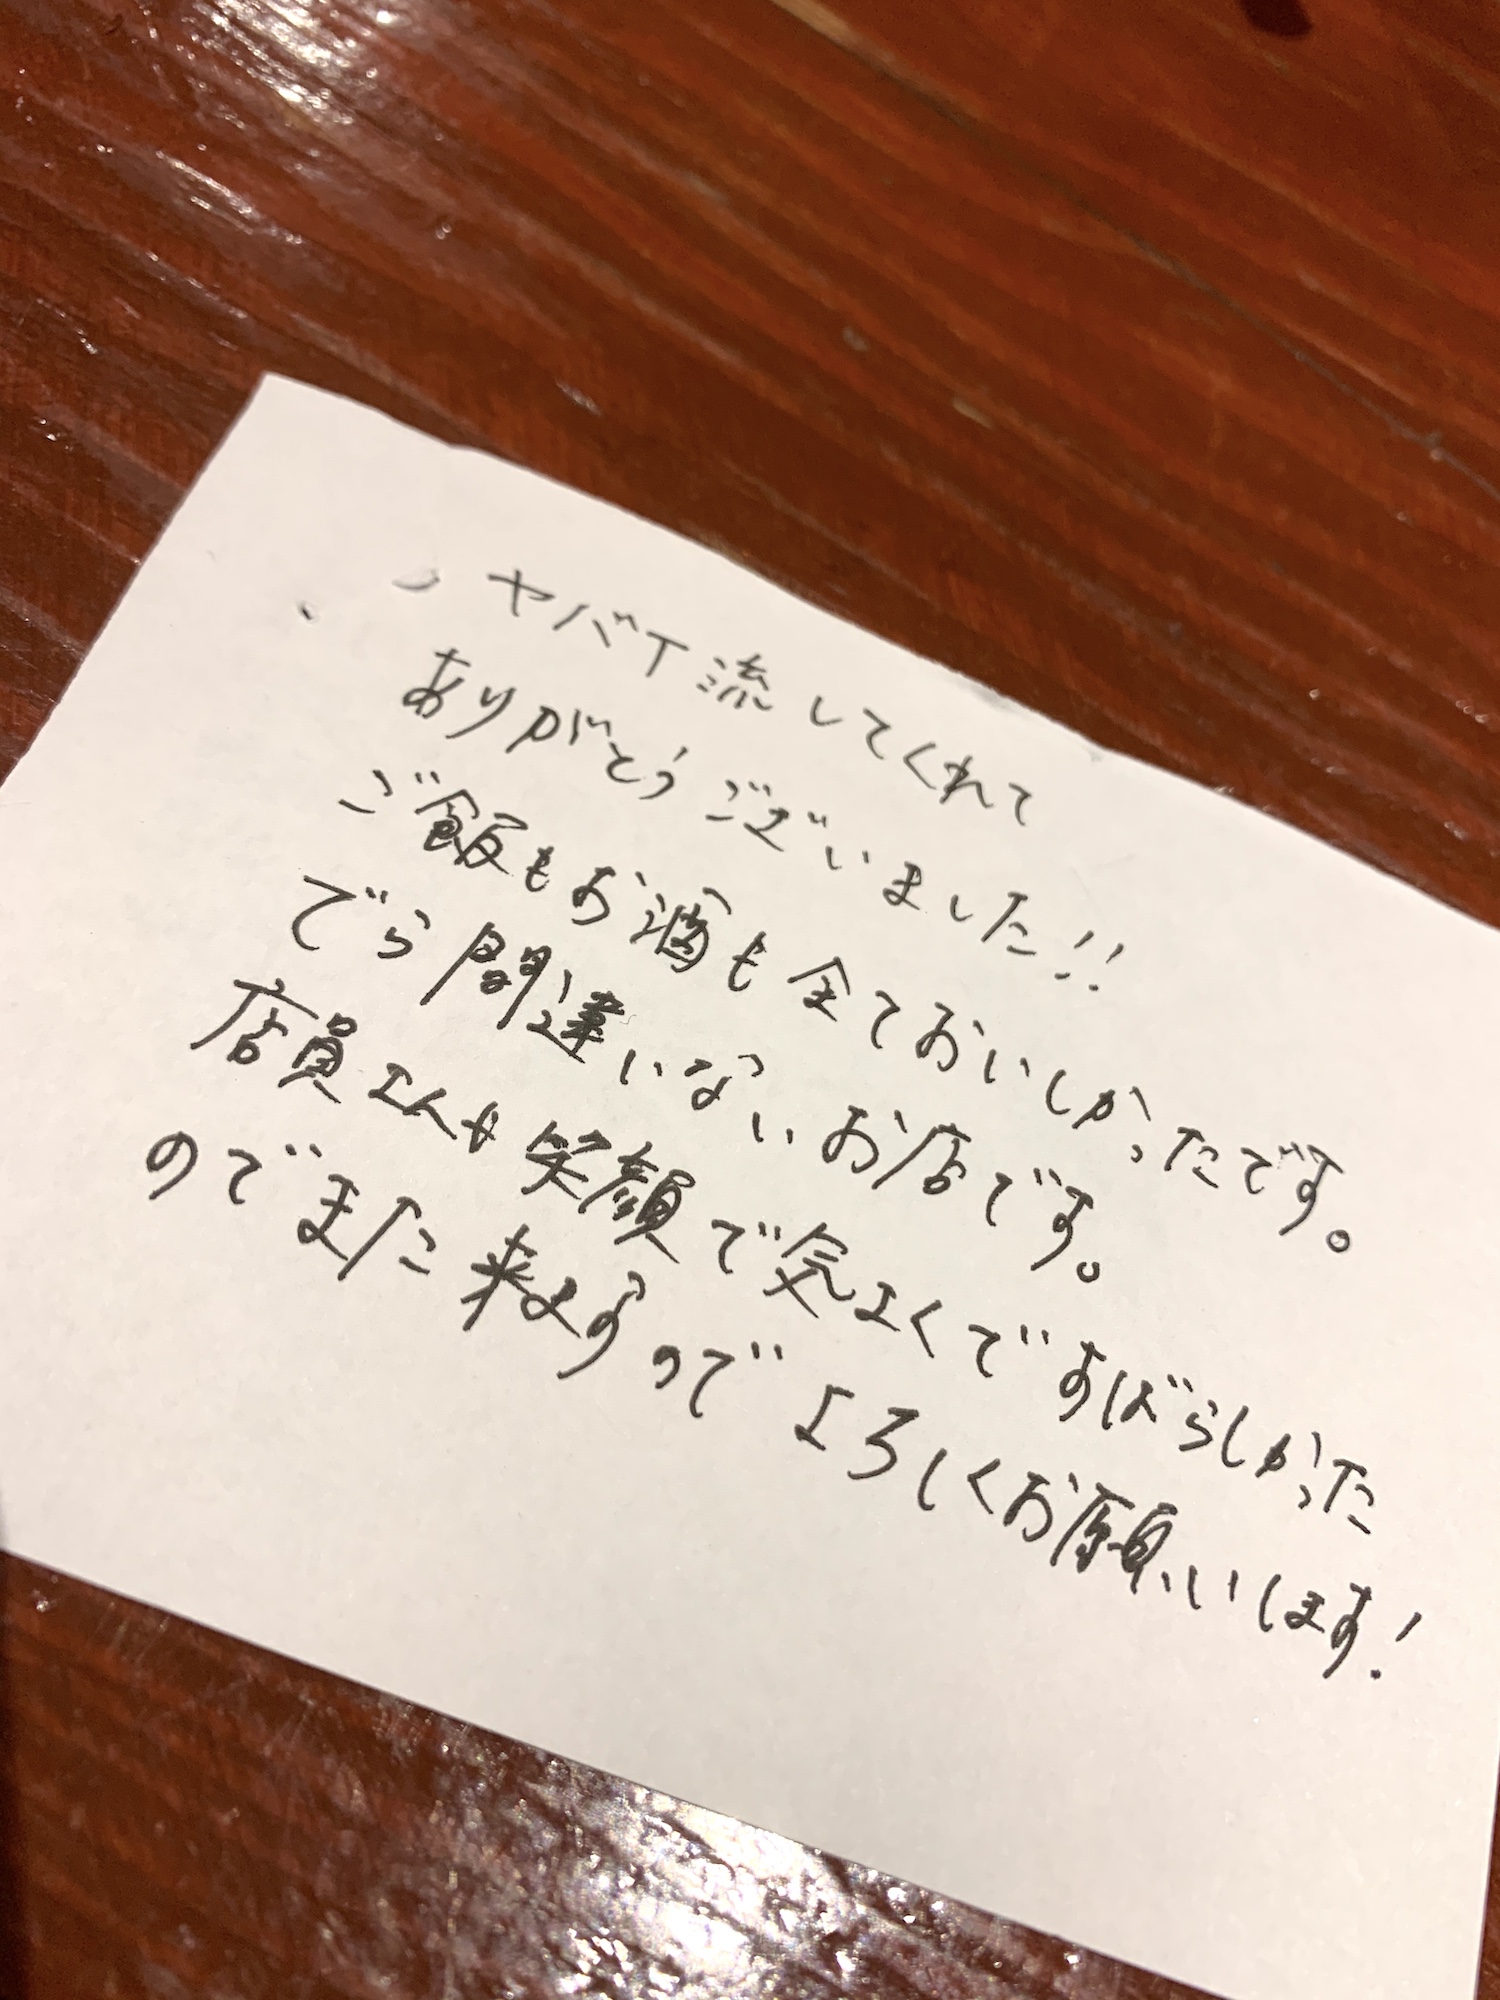 ヤバT流してくれて
ありがとうございました!!
ご飯もお酒も全ておいしかったです。
でら間違いないお店です。
店員さんも笑顔で気よくですばらしかった
のでまた来ますのでよろしくお願いします!